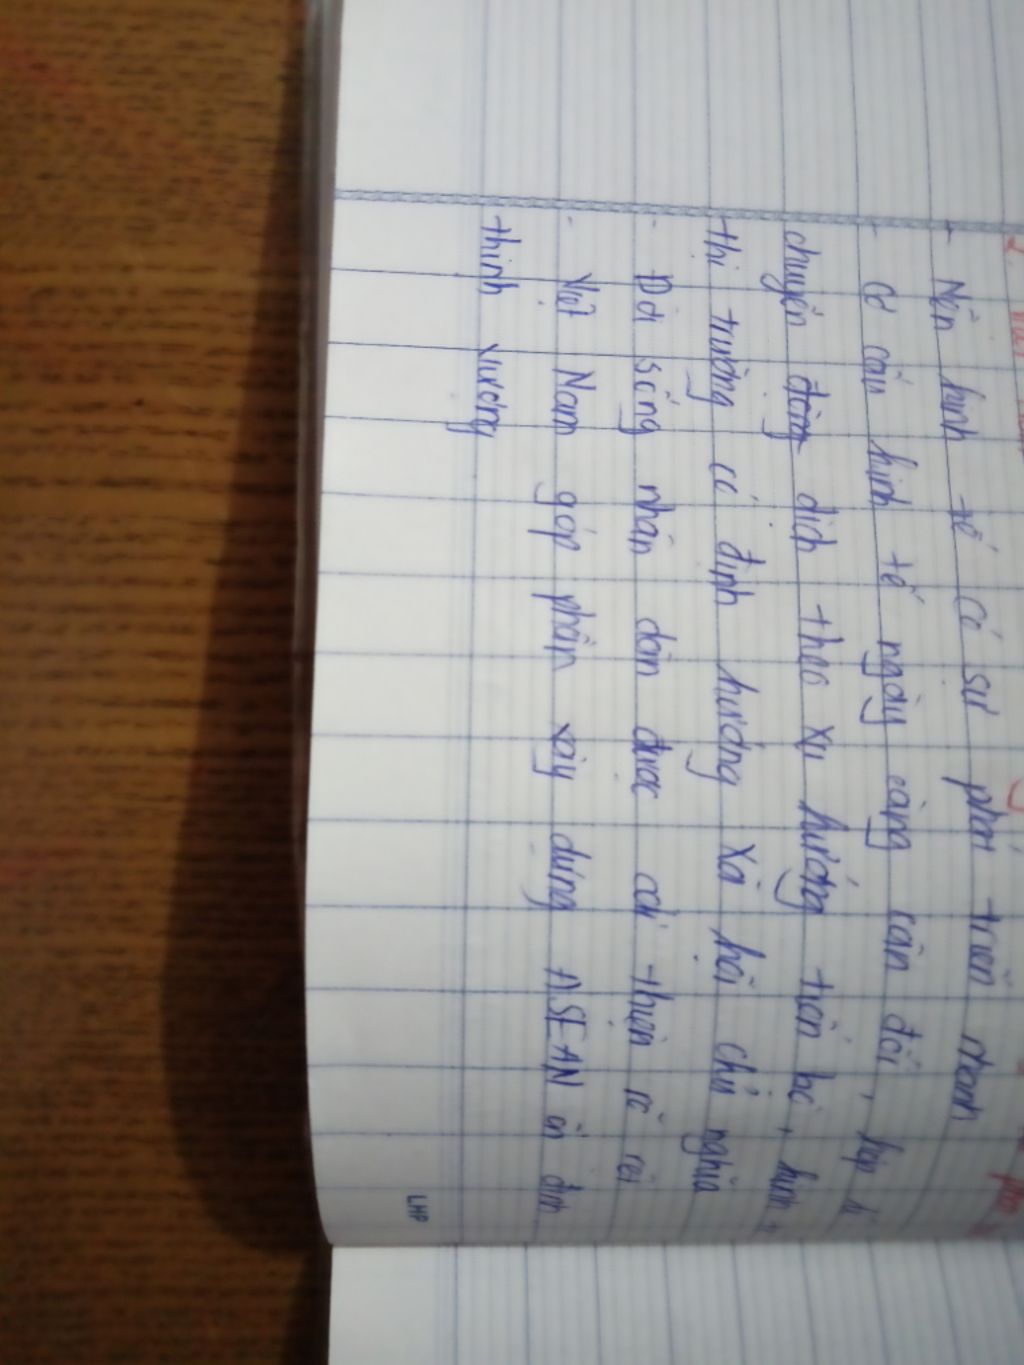 2.
- Nền kinh tế có sự phát triển nhanh
- Cơ cấu kinh tế ngày càng cân đối, hợp lí
chuyển động dịch theo xu hướng tiến bộ, kinh
thị trường có định hướng xã hội chủ nghĩa
- Đời sống nhân dân được cải thiện rõ rệt
- Việt Nam góp phần xây dựng ASEAN ổn định
thịnh vượng
LHP